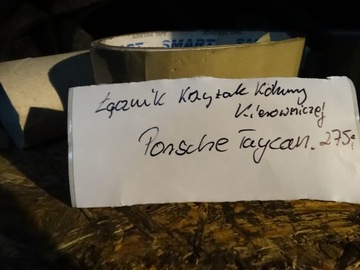 SMART
Łącznik Krzyżak Kolumny
Kierowniczej
Porsche Taycan. 275,-